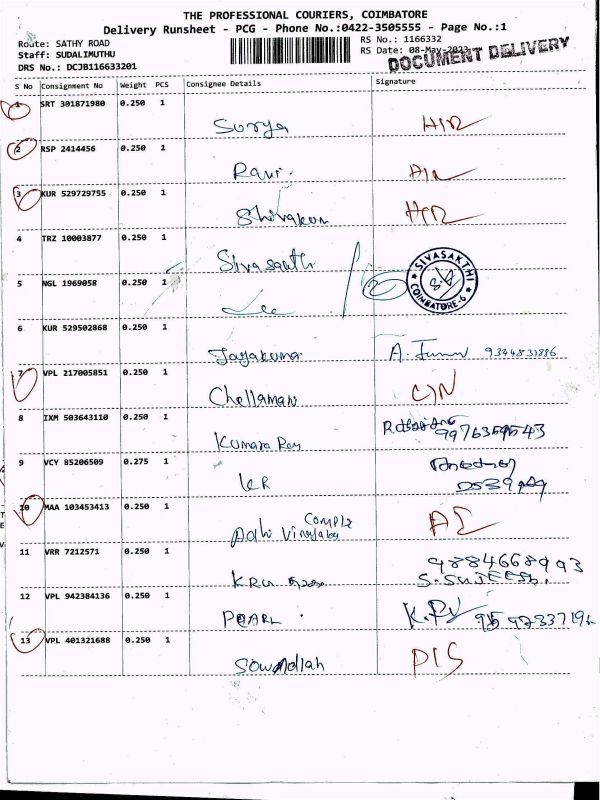 THE PROFESSIONAL COURIERS, COIMBATORE
Delivery Runsheet - PCG - Phone No.:0422-3505555 - Page No.:1
Route: SATHY ROAD
RS No.: 1166332
Staff: SUDALIMUTHU
RS Date: 08-May-2023
DOCUMENT DELIVERY
DRS No.: DCJB116633201
S No Consignment No Weight PCS Consignee Details Signature
1 SRT 301871980 0.250 1
Surya
2 RSP 2414456 0.250 1
Ravi.
3 KUR 529729755 0.250 1
Shivakum
4 TRZ 10003877 0.250 1
Sivasanth
SIVASAKTHI COIMBATORE-6
5 NGL 1969058 0.250 1
6 KUR 529502868 0.250 1
Jayakumar A. 9344831886
7 VPL 217005851 0.250 1
Chellaman
8 IXM 503643110 0.250 1
Kumara Ray
9 VCY 85206509 0.275 1
KR
10 MAA 103453413 0.250 1
Comple
Adhi
11 VRR 7212571 0.250 1
9884668993
KRU S. SUJEESH.
12 VPL 942384136 0.250 1
PEARL
13 VPL 401321688 0.250 1
DIS